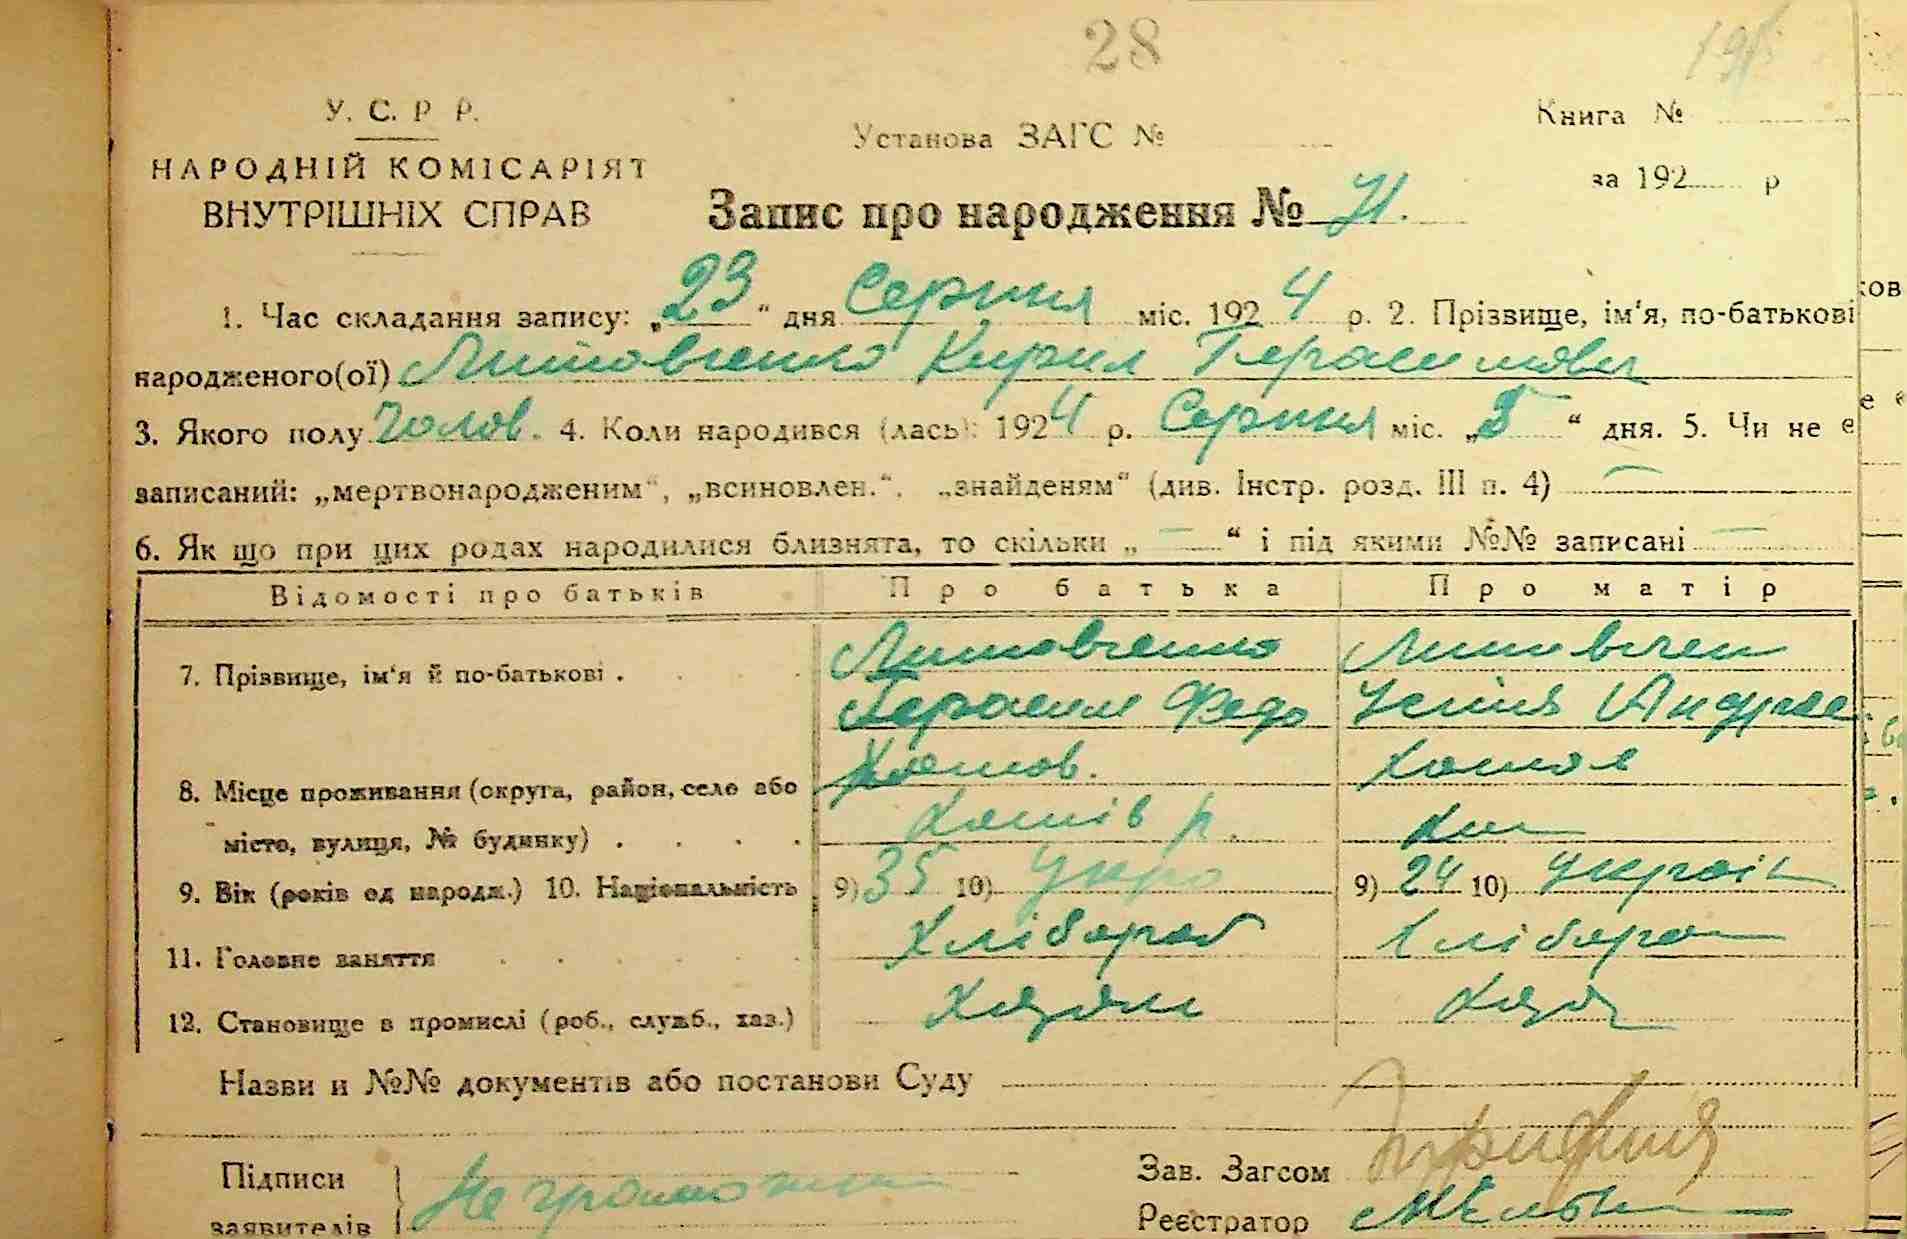 28
У. С. Р Р.
Книга №
Установа ЗАГС №
НАРОДНІЙ КОМІСАРІЯТ
за 192 р
ВНУТРІШНІХ СПРАВ
Запис про народження №
1. Час складання запису: „23“ дня Серпня міс. 1924 р. 2. Прізвище, ім‘я, по-батькові
народженого(ої) Литовченко Кирил Герасимович
3. Якого полу Чолов. 4. Коли народився (лась): 1924 р. Серпня міс. „5“ дня. 5. Чи не є
записаний: „мертвонародженим“, „всиновлен.“, „знайденям“ (див. Інстр. розд. III п. 4) —
6. Як що при цих родах народилися близнята, то скільки „—“ і під якими №№ записані —
Відомості про батьків Про батька Про матір
7. Прізвище, ім‘я й по-батькові . Литовченко Литовчен
Герасим Федо Андрее
8. Місце проживання (округа, район, село або
місто, вулиця, № будинку) .
9. Вік (років од народж.) 10. Національність 9) 35 10) Укра 9) 24 10) Україн
11. Головне заняття Хлібороб Хлібороб
12. Становище в промислі (роб., служб., хаз.)
Назви и №№ документів або постанови Суду
Підписи Неграмотний
Зав. Загсом
заявителів
Реєстратор